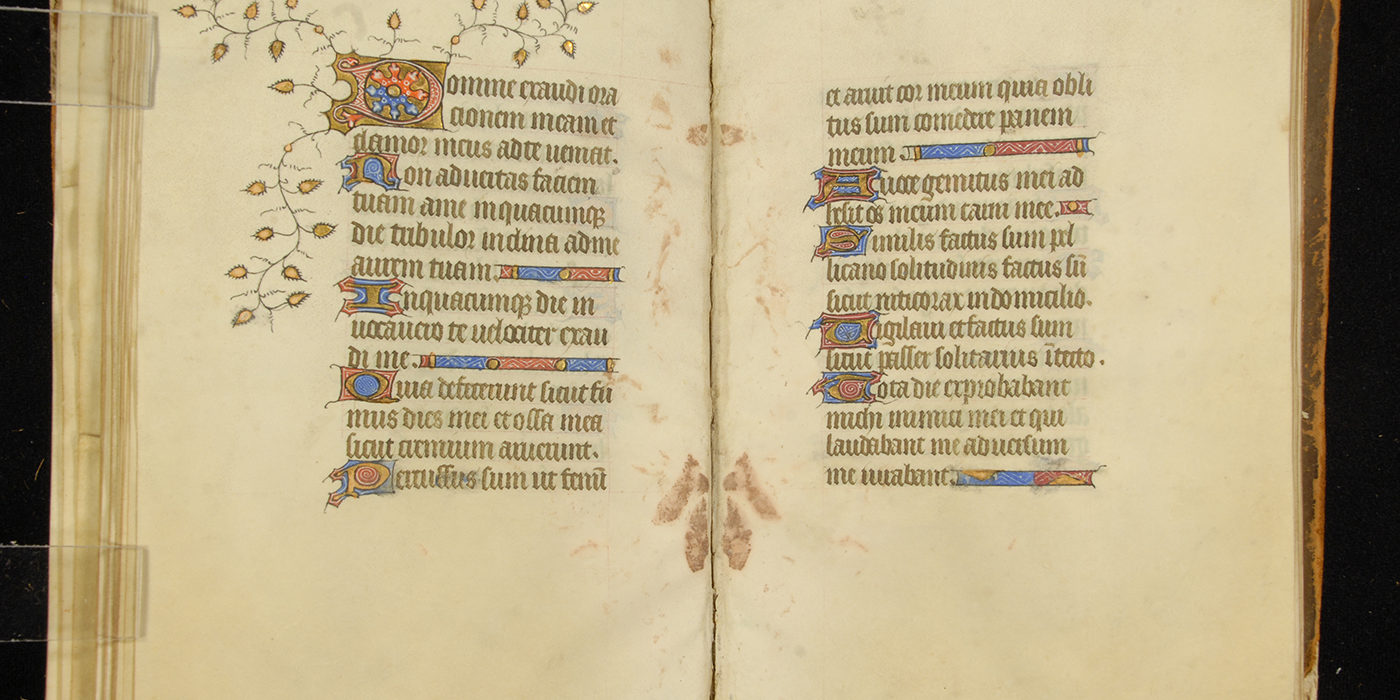 Domine exaudi ora
cionem meam et
clamor meus ad te ueniat.
Non aduertas faciem
tuam a me in quacumq;
die tribulor inclina ad me
aurem tuam
In quacumq; die in
uocauero te uelociter exau
di me.
Quia defecerunt sicut fu
mus dies mei et ossa mea
sicut cremium aruerunt.
Percussus sum ut fenū
et aruit cor meum quia obli
tus sum comedere panem
meum
A uoce gemitus mei ad
hesit os meum carni mee.
Similis factus sum pel
licano solitudinis factus sū
sicut niticorax in domicilio.
Vigilaui et factus sum
sicut passer solitarius ī tecto.
Tota die exprobabant
michi inimici mei et qui
laudabant me aduersum
me iurabant.